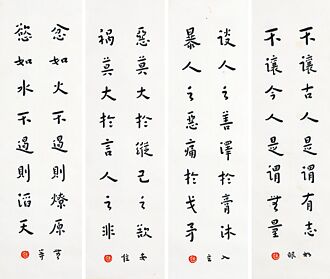 不讓古人是謂有志
不讓今人是謂無量
如眼
談人之善澤於膏沐
暴人之惡痛於戈矛
入玄
惡莫大於縱己之欲
禍莫大於言人之非
安住
忿如火不遏則燎原
慾如水不遏則滔天